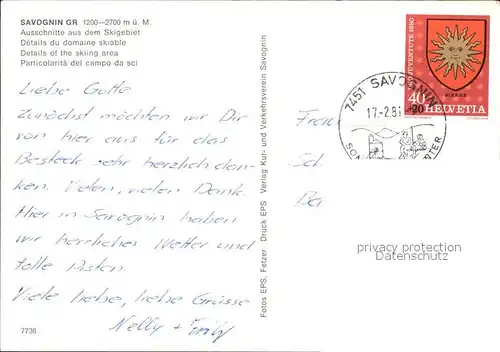 SAVOGNIN GR 1200—2700 m ü. M.
Ausschnitte aus dem Skigebiet
Détails du domaine skiable
Details of the skiing area
Particolarità del campo da sci
Liebe Gotte
Zunächst möchten wir Dir
von hier aus für das
Besteck sehr herzlich dan-
ken. Vielen, vielen Dank.
Hier in Savognin haben
wir herrliches Wetter und
tolle Pisten.
Viele liebe, liebe Grüsse
Nelly + Emily
7736
Fotos EPS, Fetzer Druck EPS Verlag Kur- und Verkehrsverein Savognin
7451 SAVOGNIN
17.-2.81
PRO JUVENTUTE 1980
SIERRE
40
HELVETIA
privacy protection
Datenschutz